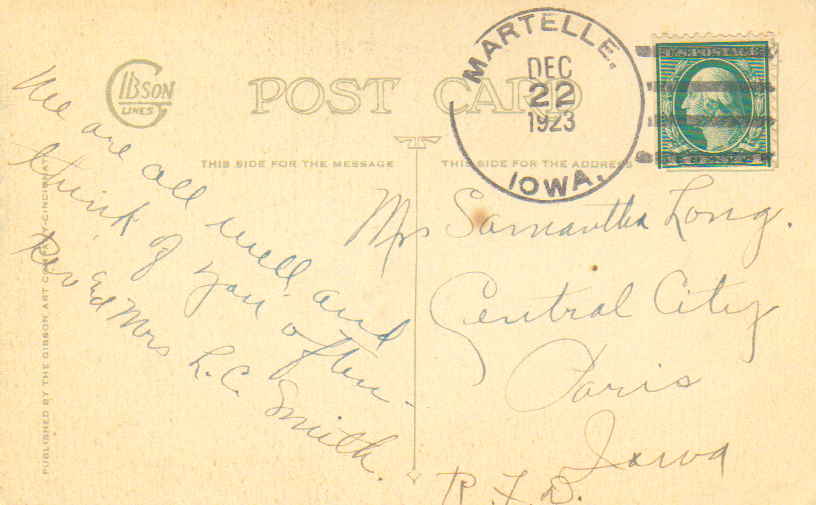 GIBSON
LINES
POST CARD
MARTELLE.
DEC
22
1923
IOWA.
U.S. POSTAGE
THIS SIDE FOR THE MESSAGE
THIS SIDE FOR THE ADDRESS
We are all well and
think of you often.
Rev and Mrs L.C. Smith.
Mrs Samantha Long.
Central City
Paris
Iowa
R.F.D.
PUBLISHED BY THE GIBSON ART COMPANY-CINCINNATI